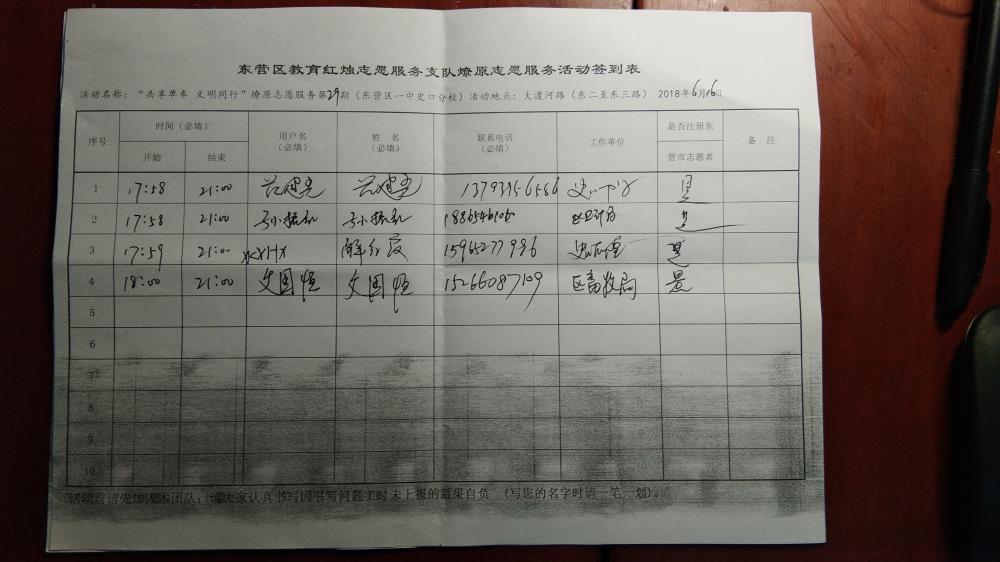 东营区教育红烛志愿服务支队燎原志愿服务活动签到表
活动名称：“共享单车 文明同行”燎原志愿服务第29期（东营区一中史口分校）活动地点：大渡河路（东二至东三路） 2018年6月16日
序号 时间（必填） 用户名（必填） 姓 名（必填） 联系电话（必填） 工作单位 是否注册东营市志愿者 备 注
开始 结束
1 17:58 21:00 13793956566 是
2 17:58 21:00 是
3 17:59 21:00 解红霞 15965277996 是
4 18:00 21:00 文国恒 文国恒 15266087109 区畜牧局 是
5
6
7
8
9
10
活动前请先加 团队；请大家认真书写因书写问题工时未上报的后果自负 （写您的名字时请一笔一划）。